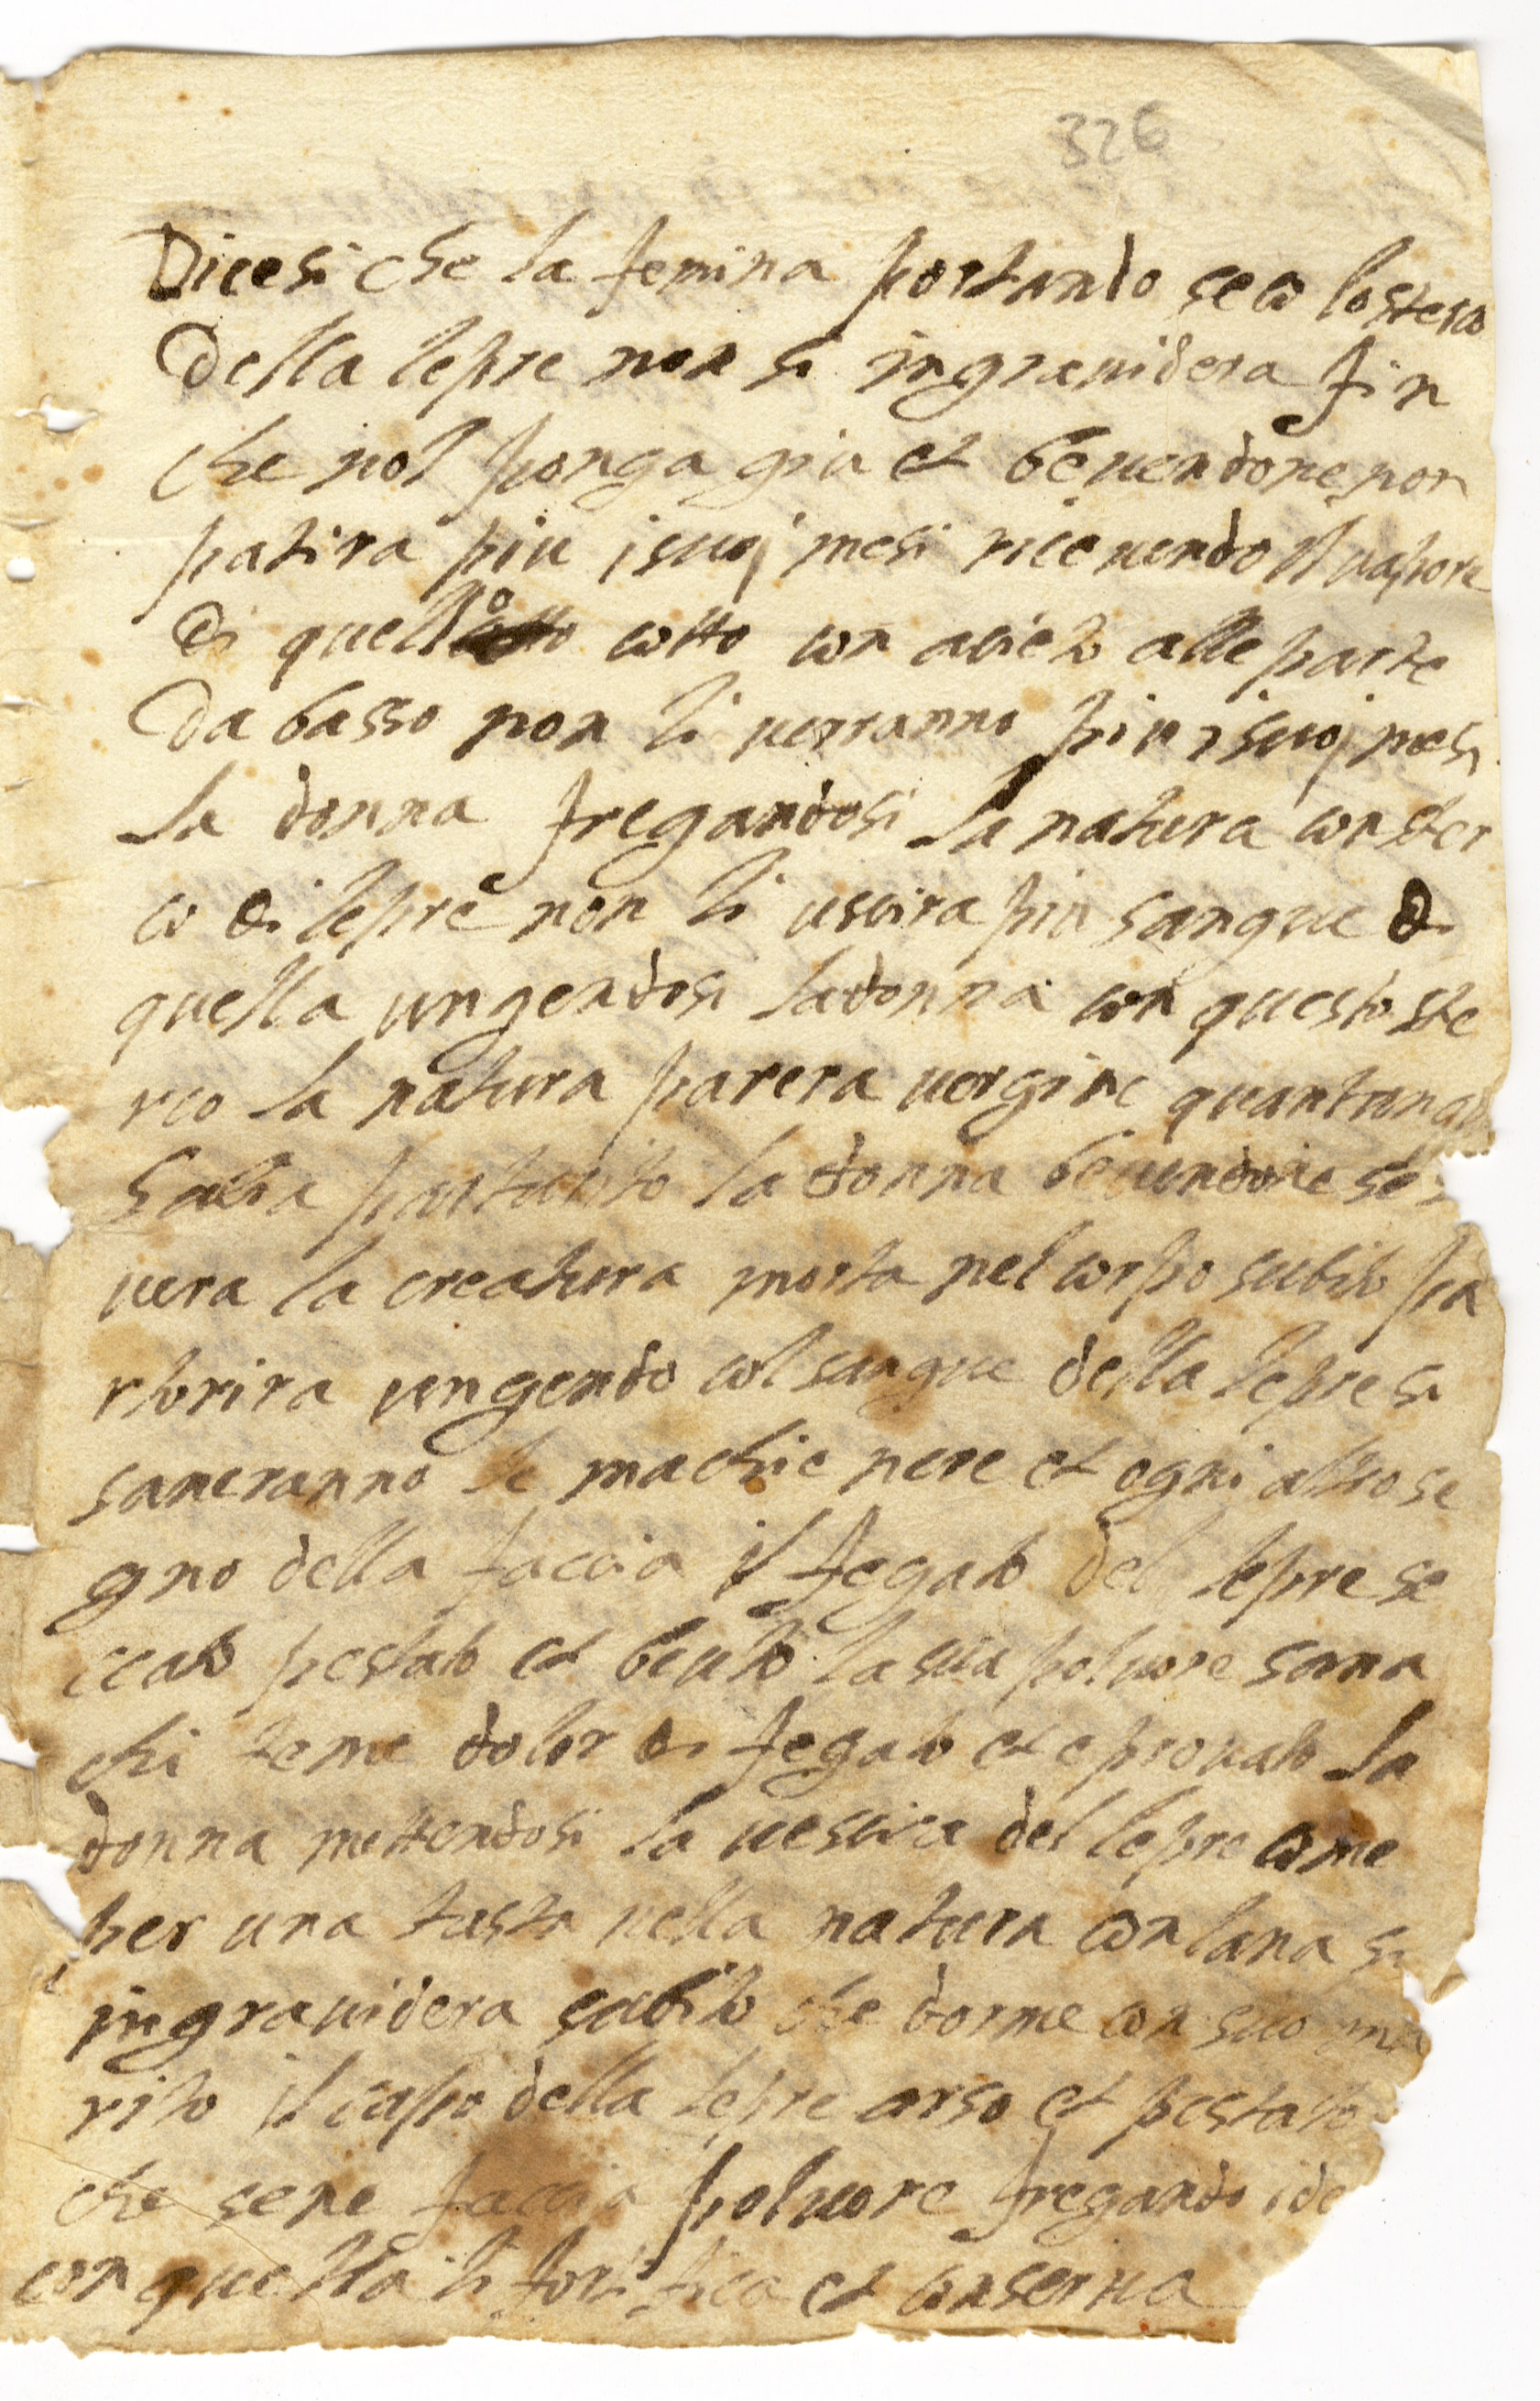 326
Dicesi che la femina portando seco lo sterco
della lepre non si ingrauidera fin
che nol ponga giu et beuendone non
patira piu i suoj mesi riceuendo il uapore
di quello cotto con acieto alle parte
da basso non li uerranno piu i suoj mesi
la donna fregandosi la natura con ster
co di lepre non li uscira piu sangue di
quella ungendosi la donna con questo ste
rco la natura parera uergine quantunqu
habia parturito la donna beuendone se
uera la creatura morta nel corpo subito pa
rtorira ungendo col sangue della lepre si
saneranno le machie nere et ogni altro se
gno della faccia il fegato del lepre se
ccato pestato et beuto la sua poluore sana
chi teme dolor di fegato et e prouato la
donna mettendosi la uescica del lepre come
per una tasta nella natura con lana si
ingrauidera subito che dorme con suo ma
rito il capo della lepre arso et pestato
che se ne faccia poluore fregando i de
con quella li fortifica et conserua